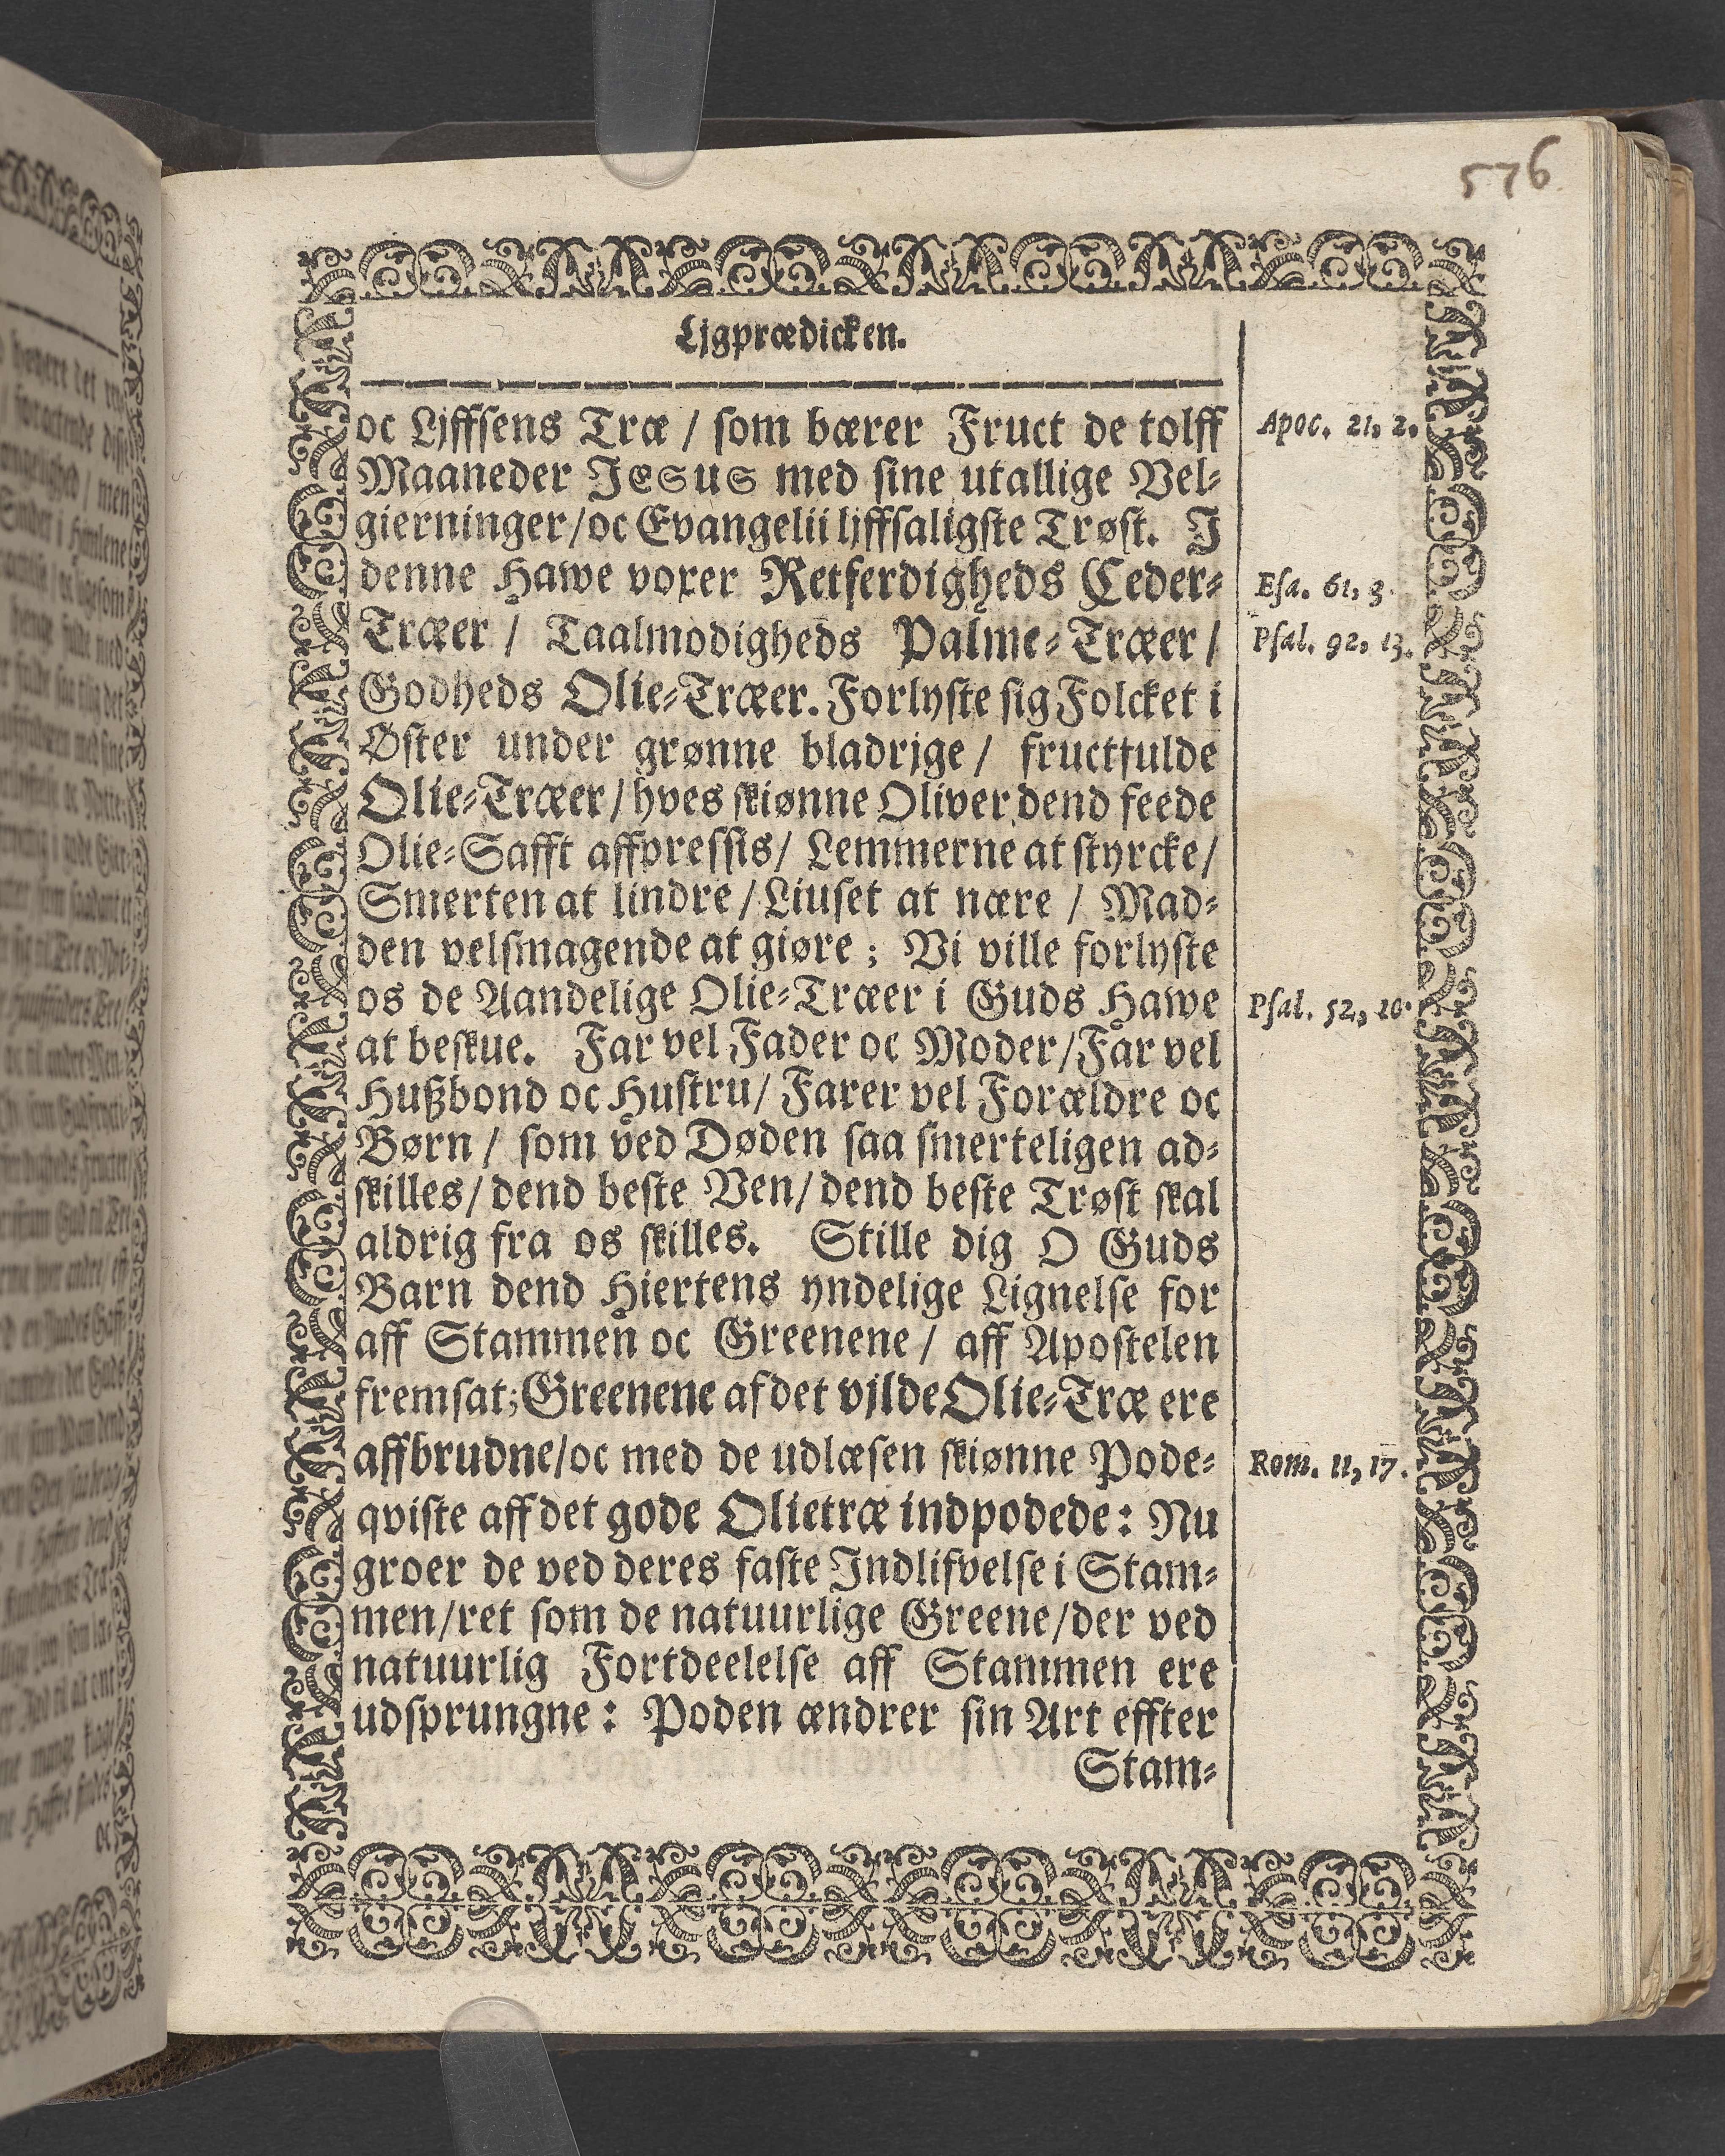 576
Ljgprædicken.
oc Ljffsens Træ / som bærer Fruct de tolff
Apoc. 21, 2.
Maaneder JESUS med sine utallige Vel-
gierninger/oc Evangelii ljffsaligste Trøst. I
denne Hawe voxer Retferdigheds Ceder-
Esa. 61, 3.
Træer / Taalmodigheds Palme-Træer /
Psal. 92, 13.
Godheds Olie-Træer. Forlyste sig Folcket i
Øster under grønne bladrjge / fructfulde
Olie-Træer / hves skiønne Oliver dend feede
Olie-Safft affpressis / Lemmerne at styrcke /
Smerten at lindre / Liuset at nære / Mad-
den velsmagende at giøre ; Vi ville forlyste
os de Aandelige Olie-Træer i Guds Hawe
Psal. 52, 10.
at beskue. Far vel Fader oc Moder / Far vel
Hußbond oc Hustru / Farer vel Forældre oc
Børn / som ved Døden saa smerteligen ad-
skilles / dend beste Ven / dend beste Trøst skal
aldrig fra os skilles. Stille dig O Guds
Barn dend Hiertens yndelige Lignelse for
aff Stammen oc Greenene / aff Apostelen
fremsat; Greenene af det vjlde Olie-Træ ere
affbrudne/oc med de udlæsen skiønne Pode-
Rom. 11, 17.
qviste aff det gode Olietræ indpodede: Nu
groer de ved deres faste Indlifvelse i Stam-
men/ret som de natuurlige Greene/der ved
natuurlig Fortdeelelse aff Stammen ere
udsprungne: Poden ændrer sin Art effter
Stam-